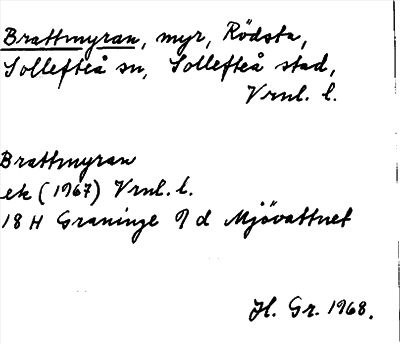 Brattmyran, myr, Rödsta,
Sollefteå sn, Sollefteå stad,
Vrnl. l.
Brattmyran
ek (1967) Vrnl. l.
18 H Graninge 9 d Mjövattnet
H. Gr. 1968.